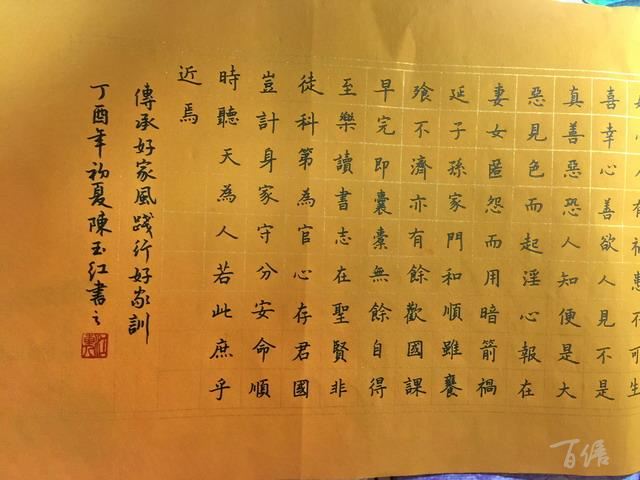 心人有禍患不可生
喜幸心善欲人見不是
真善惡恐人知便是大
惡見色而起淫心報在
妻女匿怨而用暗箭禍
延子孫家門和順雖饔
飧不濟亦有餘歡國課
早完即囊橐無餘自得
至樂讀書志在聖賢非
徒科第為官心存君國
豈計身家守分安命順
時聽天為人若此庶乎
近焉
傳承好家風踐行好家訓
丁酉年初夏陳玉紅書之